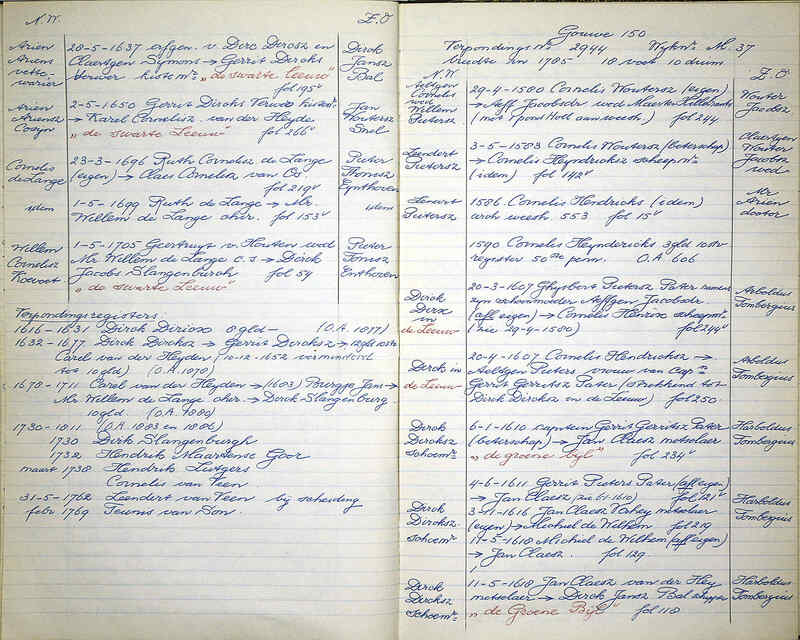 N.W. Z.O
Arien 28-5-1637 erfgen. v. Dirc Dircsz en Dirck
Ariens Claertgen Symons → Gerrit Dircks Jansz
vette- verver huis en "de swarte Leeuw" Bal
warier fol 195v
Arien 2-5-1650 Gerrit Dircks Verver Jan
Ariensz → Karel Cornelisz. van der Heyde Woutersz
Cosyn "de swarte Leeuw" fol 266v Snel
Cornelis 23-3-1696 Ruth Cornelisz de Lange Pieter
de Lange (eigen) → Claes Cornelisz van Os Thomasz
fol 219v Eynthoven
idem 1-5-1699 Ruth de Lange → Mr. idem
Willem de Lange cher. fol 153v
Willem 1-5-1705 Geertruyt v. Houten wed Pieter
Cornelisz Mr Willem de Lange c.s → Dirck Tomisz
Koevoet Jacobs Slangenburch fol 54 Enthoven
"de swarte Leeuw"
Verpondingsregisters.
1616-1631 Dirck Diricx 8 gld - (O.A. 1077)
1632-1677 Dirck Dircksz → Gerrit Dircksz → 12 gld 10 st
Carel van der Heyden (10-12-1652 verminderd
tot 10 gld) (O.A. 1078)
1678-1711 Carel van der Heyden → (1683) Burgje Jans →
Mr Willem de Lange cher. → Dirck Slangenburg.
10 gld. (O.A. 1080)
1730-1811 (O.A. 1083 en 1086)
1730 Dirk Slangenburgh
1732 Hendrik Maartense Goor
maart 1738 Hendrik Lutgers
Cornelis van Veen
31-5-1762 Leendert van Veen bij scheiding
febr. 1769 Teunis van Son.
Gouwe 150
Verpondings Nr 2944 Wyknr. M. 37
breedte in 1785 18 voet 10 duim
N.W. Z.O
Aeltgen 29-4-1580 Cornelis Woutersz (eigen) Wouter
Cornelis → Aeff Jacobsdr wed Maerten Jacobsz
wed
Willem (met) fol 244
Pietersz
Leendert 3-5-1583 Cornelis Woutersz (beterschap) Claertgen
Pietersz → Cornelis Heyndricksz scheepmr Wouter
(idem) fol 142v Jacobsz
wed
Leenert 1586 Cornelis Hendricks (idem) Mr
Pietersz arch weesh. 553 fol 15v Arien
doctor
1590 Cornelis Heyndericks 3 gld 10 str
register 50ste penn. O.A 606
Dirck 20-3-1607 Ghysbert Pietersz Pater Arboldus
Dircx zyn schoonmoeder Aeffgen Jacobsdr. Tombergius
in (aff eigen) → Cornelis Henrixz scheepmr.
de Leeuw (zie 29-4-1580) fol 244v
Dirck in 20-4-1607 Cornelis Hendricksz → Arboldus
de Leeuw Aeltgen Pieters vrouw van capn Tombergius
Gerrit Gerritsz Pater (strekkend tot
Dirck Dircksz in de Leeuw) fol 250.
Dirck 6-1-1610 capitein Gerrit Geritsz Pater Harboldus
Dircksz (beterschap) → Jan Claesz metselaer Tombergius
schoenmr. "de groene byl" fol 234v
4-6-1611 Gerrit Pieters Pater (aff eigen)
→ Jan Claesz (zie 6-1-1610) fol 121v
Dirck 3-11-1616 Jan Claesz Verhey metselaer Harboldus
Dircksz. (eigen) → Michiel de Welhem fol 219 Tombergius
schoenmr 11-5-1618 Michiel de Welhem (aff eigen)
→ Jan Claesz. fol 129
Dirck 11-5-1618 Jan Claesz van der Hey Harboldus
Dircksz metselaer → Dirck Jansz Bal schipper Tombergius
Schoenmr. "de Groene Byl" fol 118